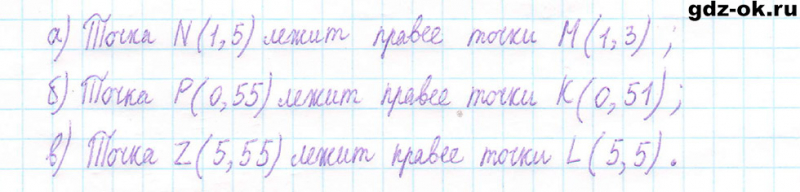 gdz-ok.ru
а) Точка N(1,5) лежит правее точки M(1,3);
б) Точка P(0,55) лежит правее точки K(0,51);
в) Точка Z(5,55) лежит правее точки L(5,5).